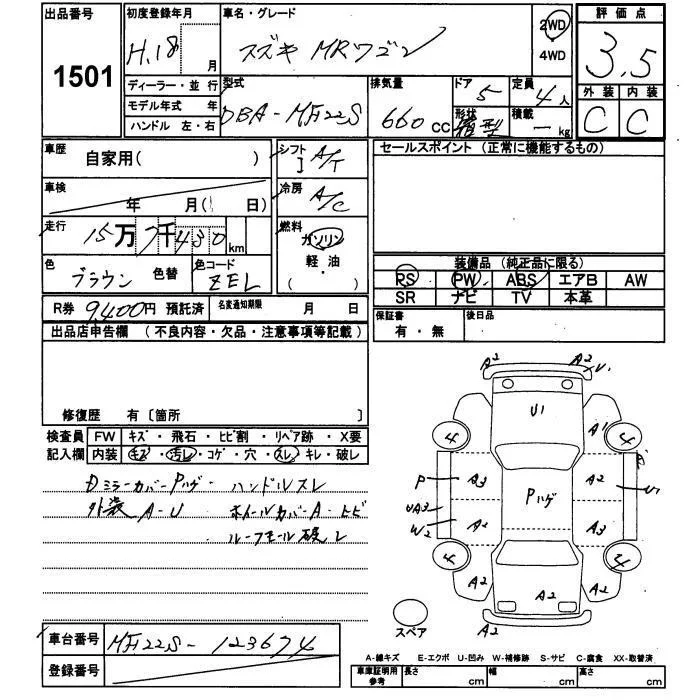 出品番号 初度登録年月 車名・グレード 評価点
1501 H.18 月 スズキ MRワゴン 2WD 4WD 3.5
ディーラー・並行 型式 排気量 ドア 定員 外装 内装
モデル年式 年 DBA-MF22S 660 cc 5 4人 C C
ハンドル 左・右 形状 箱型 積載 — kg
車歴 自家用( ) シフト A/T セールスポイント (正常に機能するもの)
車検 年 月( 日) 冷房 A/C
走行 15万7千430km 燃料 ガソリン
軽・油
( )
色 ブラウン 色替 色コード ZEL
装備品 (純正品に限る)
PS PW ABS エアB AW
SR ナビ TV 本革
R券 9,400円 預託済 名変通知期限 月 日 保証書 有・無 後日品
出品店申告欄 (不良内容・欠品・注意事項等記載)
修復歴 有〔箇所 〕
検査員 FW キズ・飛石・ヒビ割・リペア跡・X要
記入欄 内装 キズ・汚レ・コゲ・穴・スレ・キレ・破レ
Dミラーカバー Pハゲ ハンドルスレ
外装 A-U ホイールカバーA-トビ
ルーフモール破レ
A2 A2 U1
U1
4 A1 4
P A3 Pハゲ A2 U1
UA3
W2 A2 A3
4 4
A2 A2 A2
A2
スペア
車台番号 MF22S-123674
登録番号
A-線キズ E-エクボ U-凹み W-補修跡 S-サビ C-腐食 XX-取替済
車庫証明用参考 長さ cm 幅 cm 高さ cm